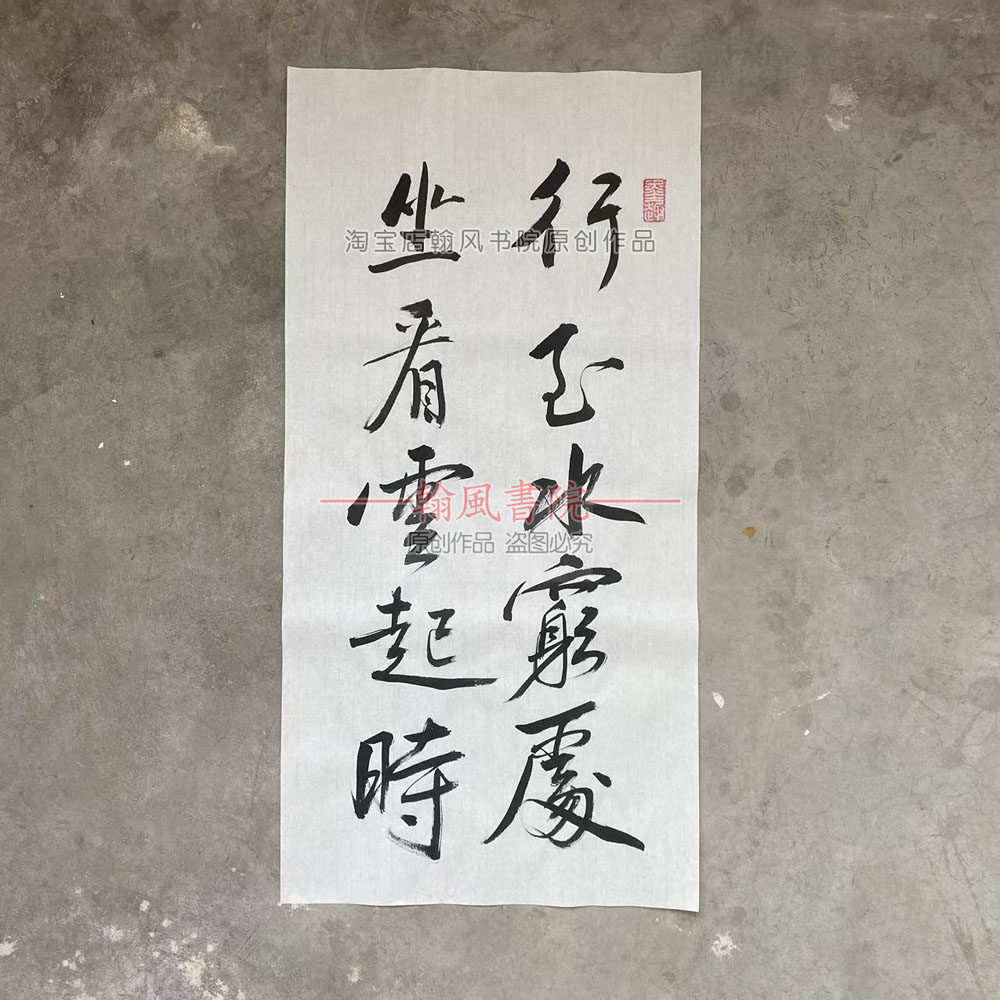 行至水窮處
坐看雲起時
淘宝店翰风书院原创作品
翰風書院
原创作品 盗图必究